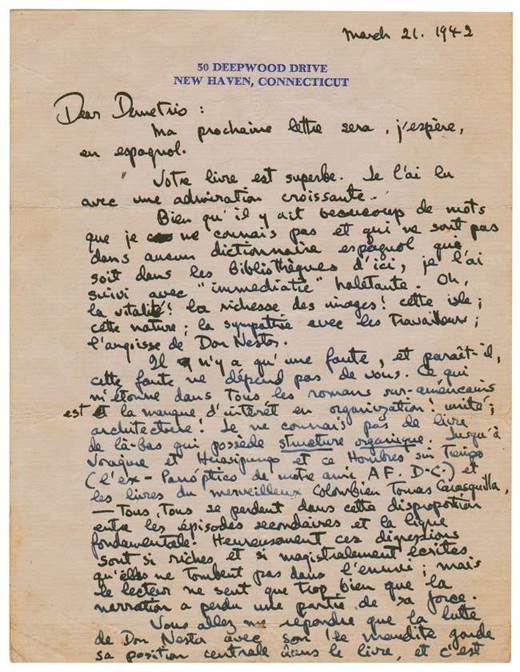 March 21. 1942
50 DEEPWOOD DRIVE
NEW HAVEN, CONNECTICUT
Dear Demetrio :
Ma prochaine lettre sera, j'espère,
en espagnol.
Votre livre est superbe. Je l'ai lu
avec une admiration croissante.
Bien qu'il y ait beaucoup de mots
que je ne connais pas et qui ne sont pas
dans aucun dictionnaire espagnol qui
soit dans les Bibliothèques d'ici, je l'ai
suivi avec "immediatie" haletante. Oh,
la vitalité! la richesse des images! cette isle;
cette nature; la sympathie avec les Travailleurs;
l'angoisse de Don Nestor.
Il n'y a qu'une faute, et paraît-il,
cette faute ne dépend pas de vous. Ce qui
m'étonne dans tous les romans sur-américains
est la manque d'intérêt en organization! unité;
architecture! Je ne connais pas de livre
de là-bas qui possède structure organique. Jusqu'à
Voragine et Huasipungo et ce Hombres sin Tiempo
(l'ex-Panóptico de notre ami A.F. D-C.) et
les livres du merveilleux Colombien Tomas Carasquilla,
— Tous, Tous se perdent dans cette disproportion
entre les épisodes secondaires et la ligne
fondamentale. Heureusement ces digressions
sont si riches et si magistralement écrites
qu'elles ne tombent pas dans l'ennui; mais
le lecteur ne sent que trop bien que la
narration a perdu une partie de sa force.
Vous allez me répondre que la lutte
de Don Nestor avec son île maudite garde
sa position centrale dans le livre, et c'est